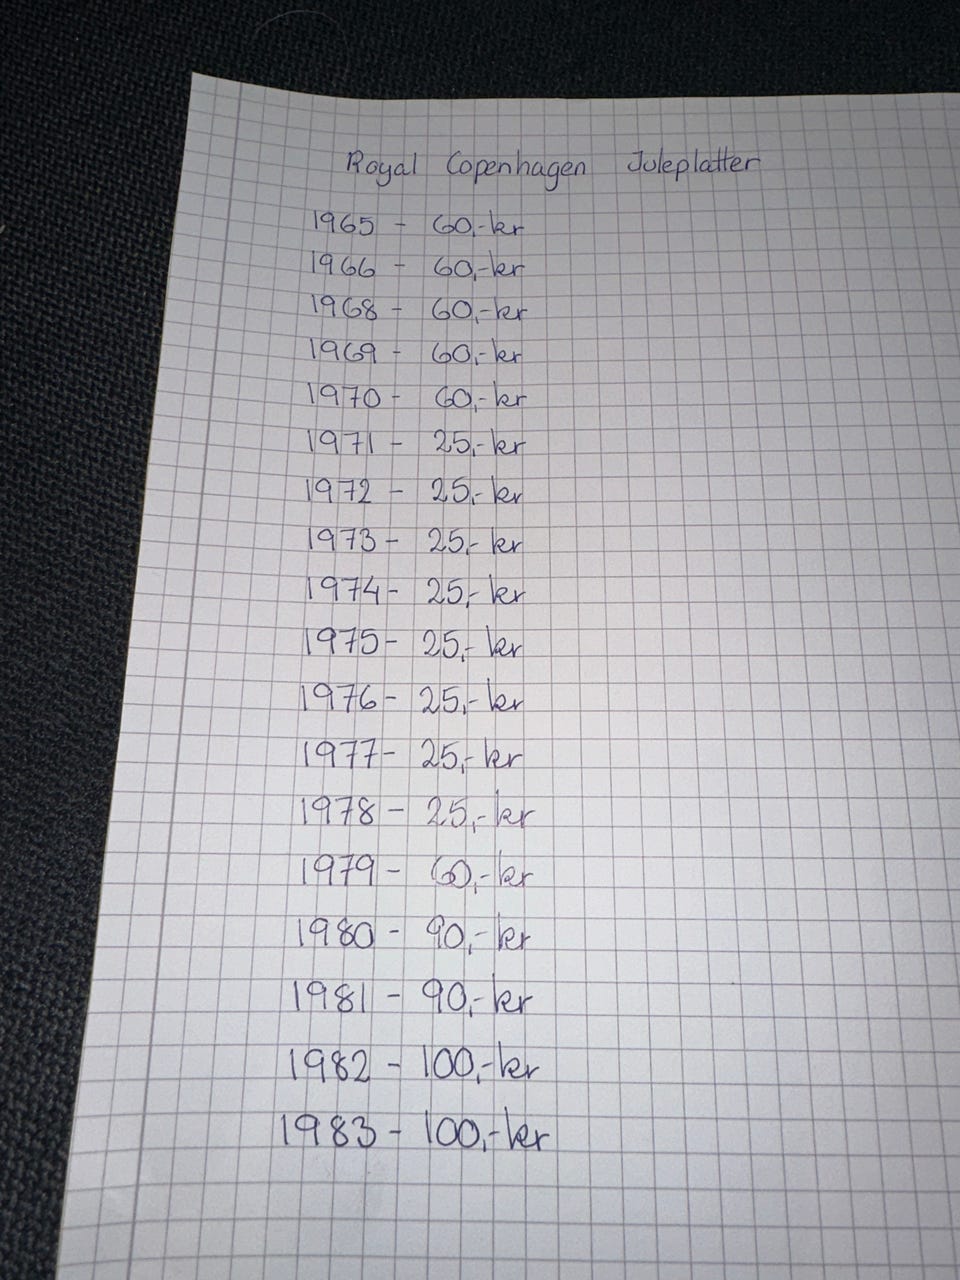 Royal Copenhagen Juleplatter
1965 - 60,-kr
1966 - 60,-kr
1968 - 60,-kr
1969 - 60,-kr
1970 - 60,-kr
1971 - 25,-kr
1972 - 25,-kr
1973 - 25,-kr
1974 - 25,-kr
1975 - 25,-kr
1976 - 25,-kr
1977 - 25,-kr
1978 - 25,-kr
1979 - 60,-kr
1980 - 90,-kr
1981 - 90,-kr
1982 - 100,-kr
1983 - 100,-kr